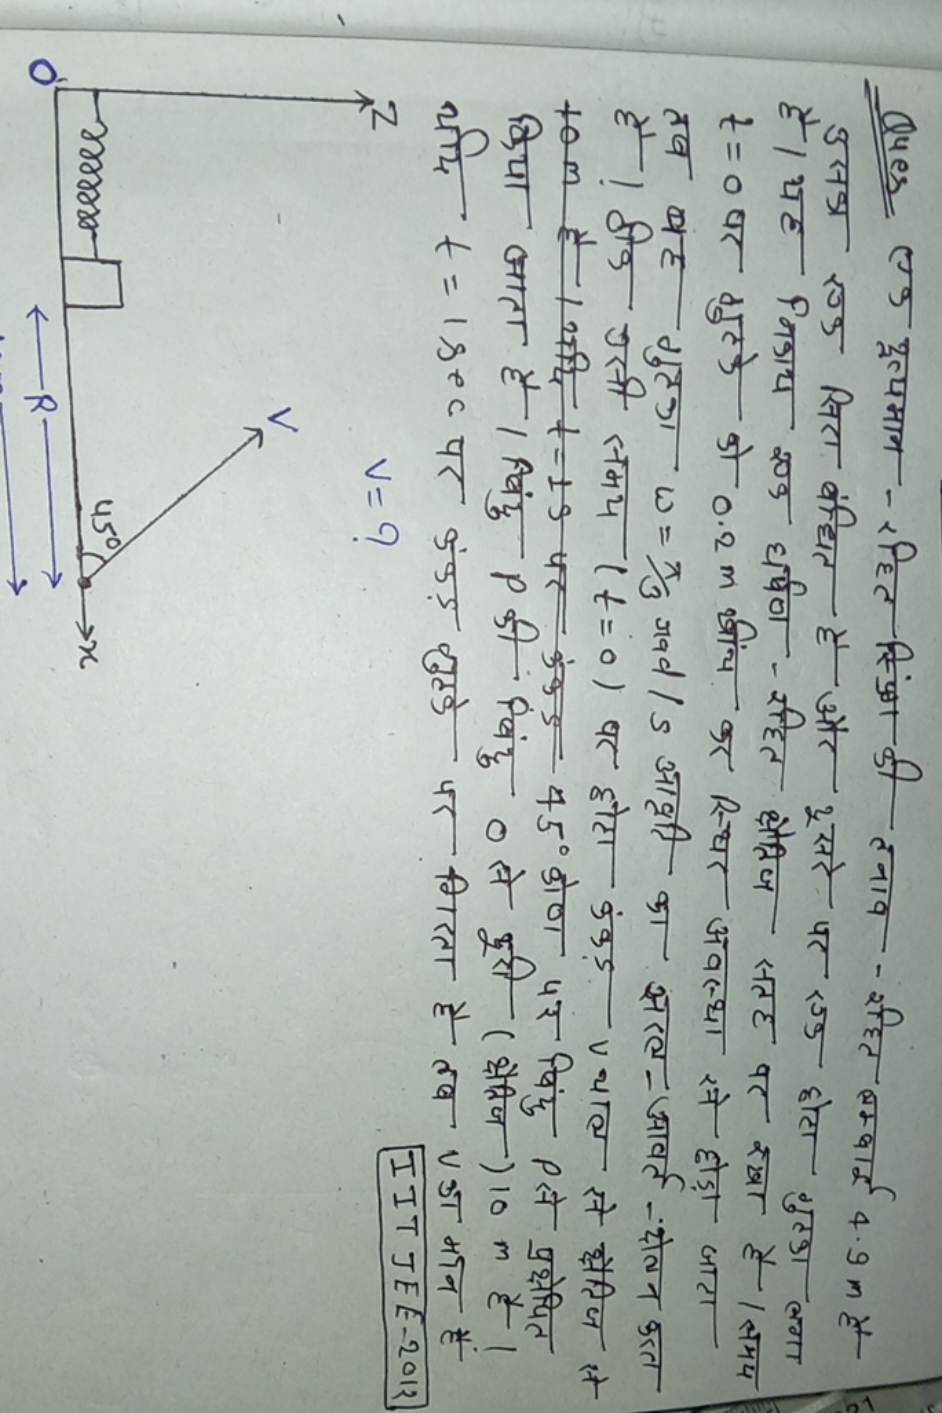 Ques एक द्रव्यमान - रहित स्प्रिंग की तनाव - रहित लम्बाई 4.9 m है
इसका एक सिरा बंधित है और दूसरे पर एक छोटा गुटका लगा
है। यह निकाय एक घर्षण - रहित क्षैतिज सतह पर रखा है। समय
t = 0 पर गुटके को 0.2 m खींच कर स्थिर अवस्था से छोड़ा जाता
तब यह गुटका ω = π/3 rad/s आवृत्ति का सरल - आवर्त - दोलन करता
है। ठीक उसी समय (t = 0) पर छोटा कंकड़ v चाल से क्षैतिज से
10 m है। यदि t = 1 s पर कंकड़ 45° कोण पर बिंदु P से प्रक्षेपित
किया जाता है। बिंदु P की बिंदु O से दूरी (क्षैतिज) 10 m है।
यदि t = 1 sec पर कंकड़ गुटके पर गिरता है तब v का मान है
IIT JEE-2012
V = ?
Z
V
45°
O
R
x